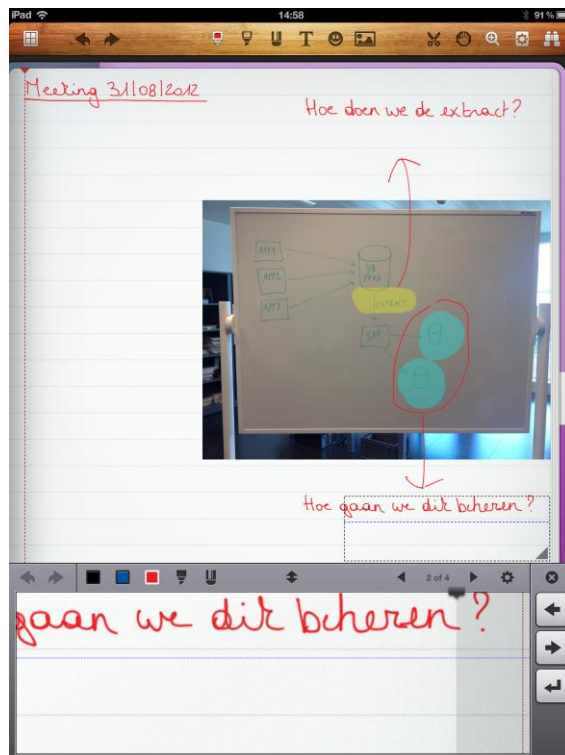 iPad
14:58
91 %
T
Meeting 31/08/2012
Hoe doen we de extract?
APP1
APP2
APP3
DB
PROD
EXTRACT
Hoe gaan we dit beheren?
2 of 4
gaan we dit beheren?